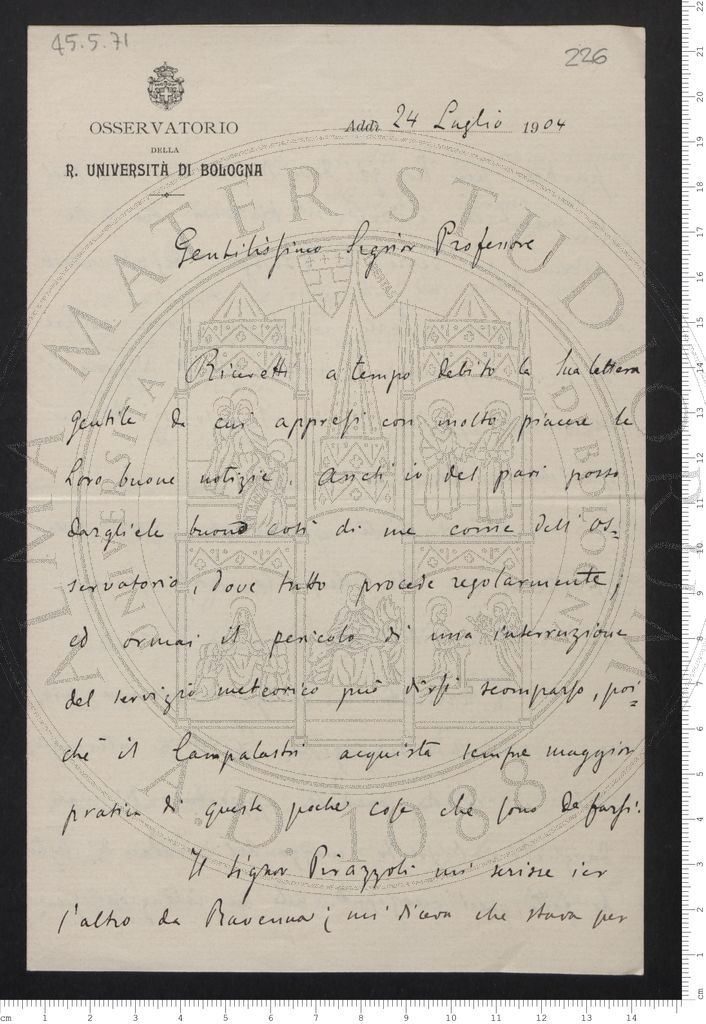 45.5.71
226
OSSERVATORIO
DELLA
R. UNIVERSITÀ DI BOLOGNA
Addì 24 Luglio 1904
Gentilissimo Signor Professore,
Ricevetti a tempo debito la Sua lettera
gentile da cui appresi con molto piacere le
Loro buone notizie. Anch'io del pari posso
dargliele buone così di me come dell'Os=
servatorio, dove tutto procede regolarmente;
ed ormai il pericolo di una interruzione
del servizio meteorico può dirsi scomparso, poi=
chè il Campalastri acquista sempre maggior
pratica di queste poche cose che sono da farsi.
Il Signor Pirazzoli mi scrisse ier
l'altro da Ravenna; mi diceva che stava per
ALMA MATER STUDIORUM
A.D. 1088